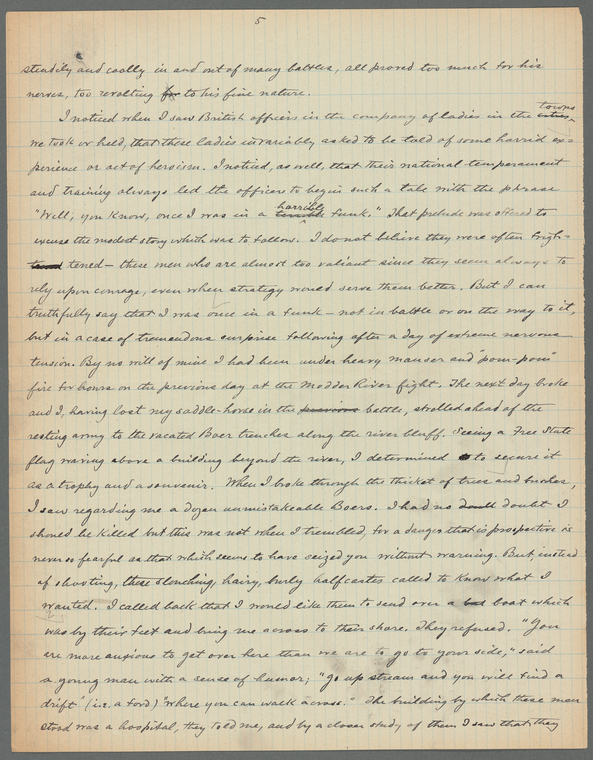 5
steadily and coolly in and out of many battles, all proved too much for his
nerves, too revolting for to his fine nature.
I noticed when I saw British officers in the company of ladies in the cities towns
we took or held, that these ladies invariably asked to be told of some horrid ex-
perience or act of heroism. I noticed, as well, that their national temperament
and training always led the officers to begin such a tale with the phrase
"Well, you know, once I was in a terrible horrible funk." That prelude was offered to
excuse the modest story which was to follow. I do not believe they were often frigh-
tened — these men who are almost too valiant since they seem always to
rely upon courage, even when strategy would serve them better. But I can
truthfully say that I was once in a funk — not in battle or on the way to it,
but in a case of tremendous surprise following after a day of extreme nervous
tension. By no will of mine I had been under heavy mauser and "pom-pom"
fire for hours on the previous day at the Modder River fight. The next day broke
and I, having lost my saddle-horse in the previous battle, strolled ahead of the
resting army to the vacated Boer trenches along the river bluff. Seeing a Free State
flag waving above a building beyond the river, I determined to secure it
as a trophy and a souvenir. When I broke through the thicket of trees and bushes,
I saw regarding me a dozen unmistakeable Boers. I had no doubt doubt I
should be killed but this was not when I trembled, for a danger that is prospective is
never so fearful as that which seems to have ceized you without warning. But, instead
of shooting, these slouching, hairy, burly halfcastes called to know what I
wanted. I called back that I would like them to send over a bot boat which
was by their feet and bring me across to their shore. They refused. "You
are more anxious to get over here than we are to go to your side," said
a young man with a sense of humor; "go up stream and you will find a
drift" (i.e. a ford) "where you can walk across." The building by which these men
stood was a hospital, they told me, and by a closer study of them I saw that they